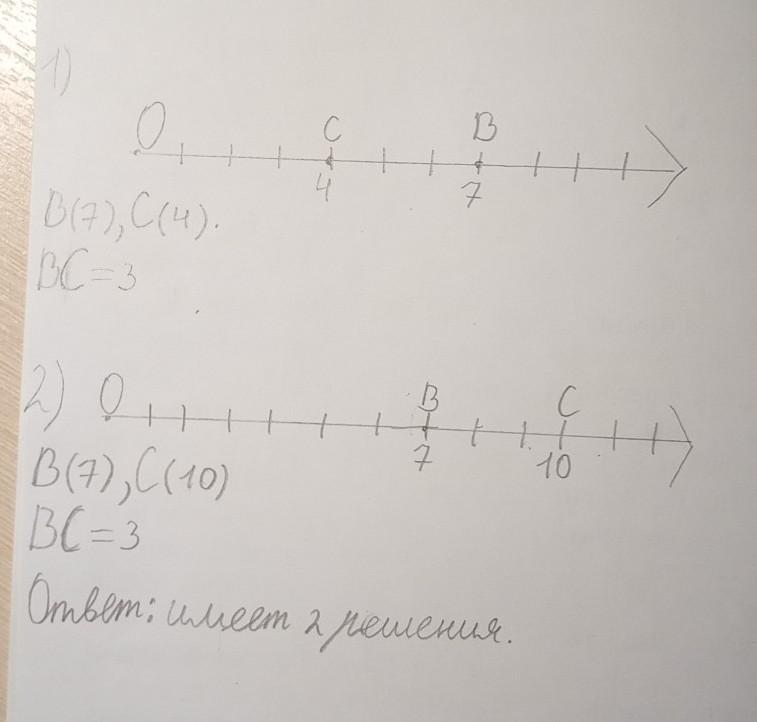 1)
O C B
4 7
B(7), C(4).
BC=3
2) O B C
7 10
B(7), C(10)
BC=3
Ответ: имеет 2 решения.